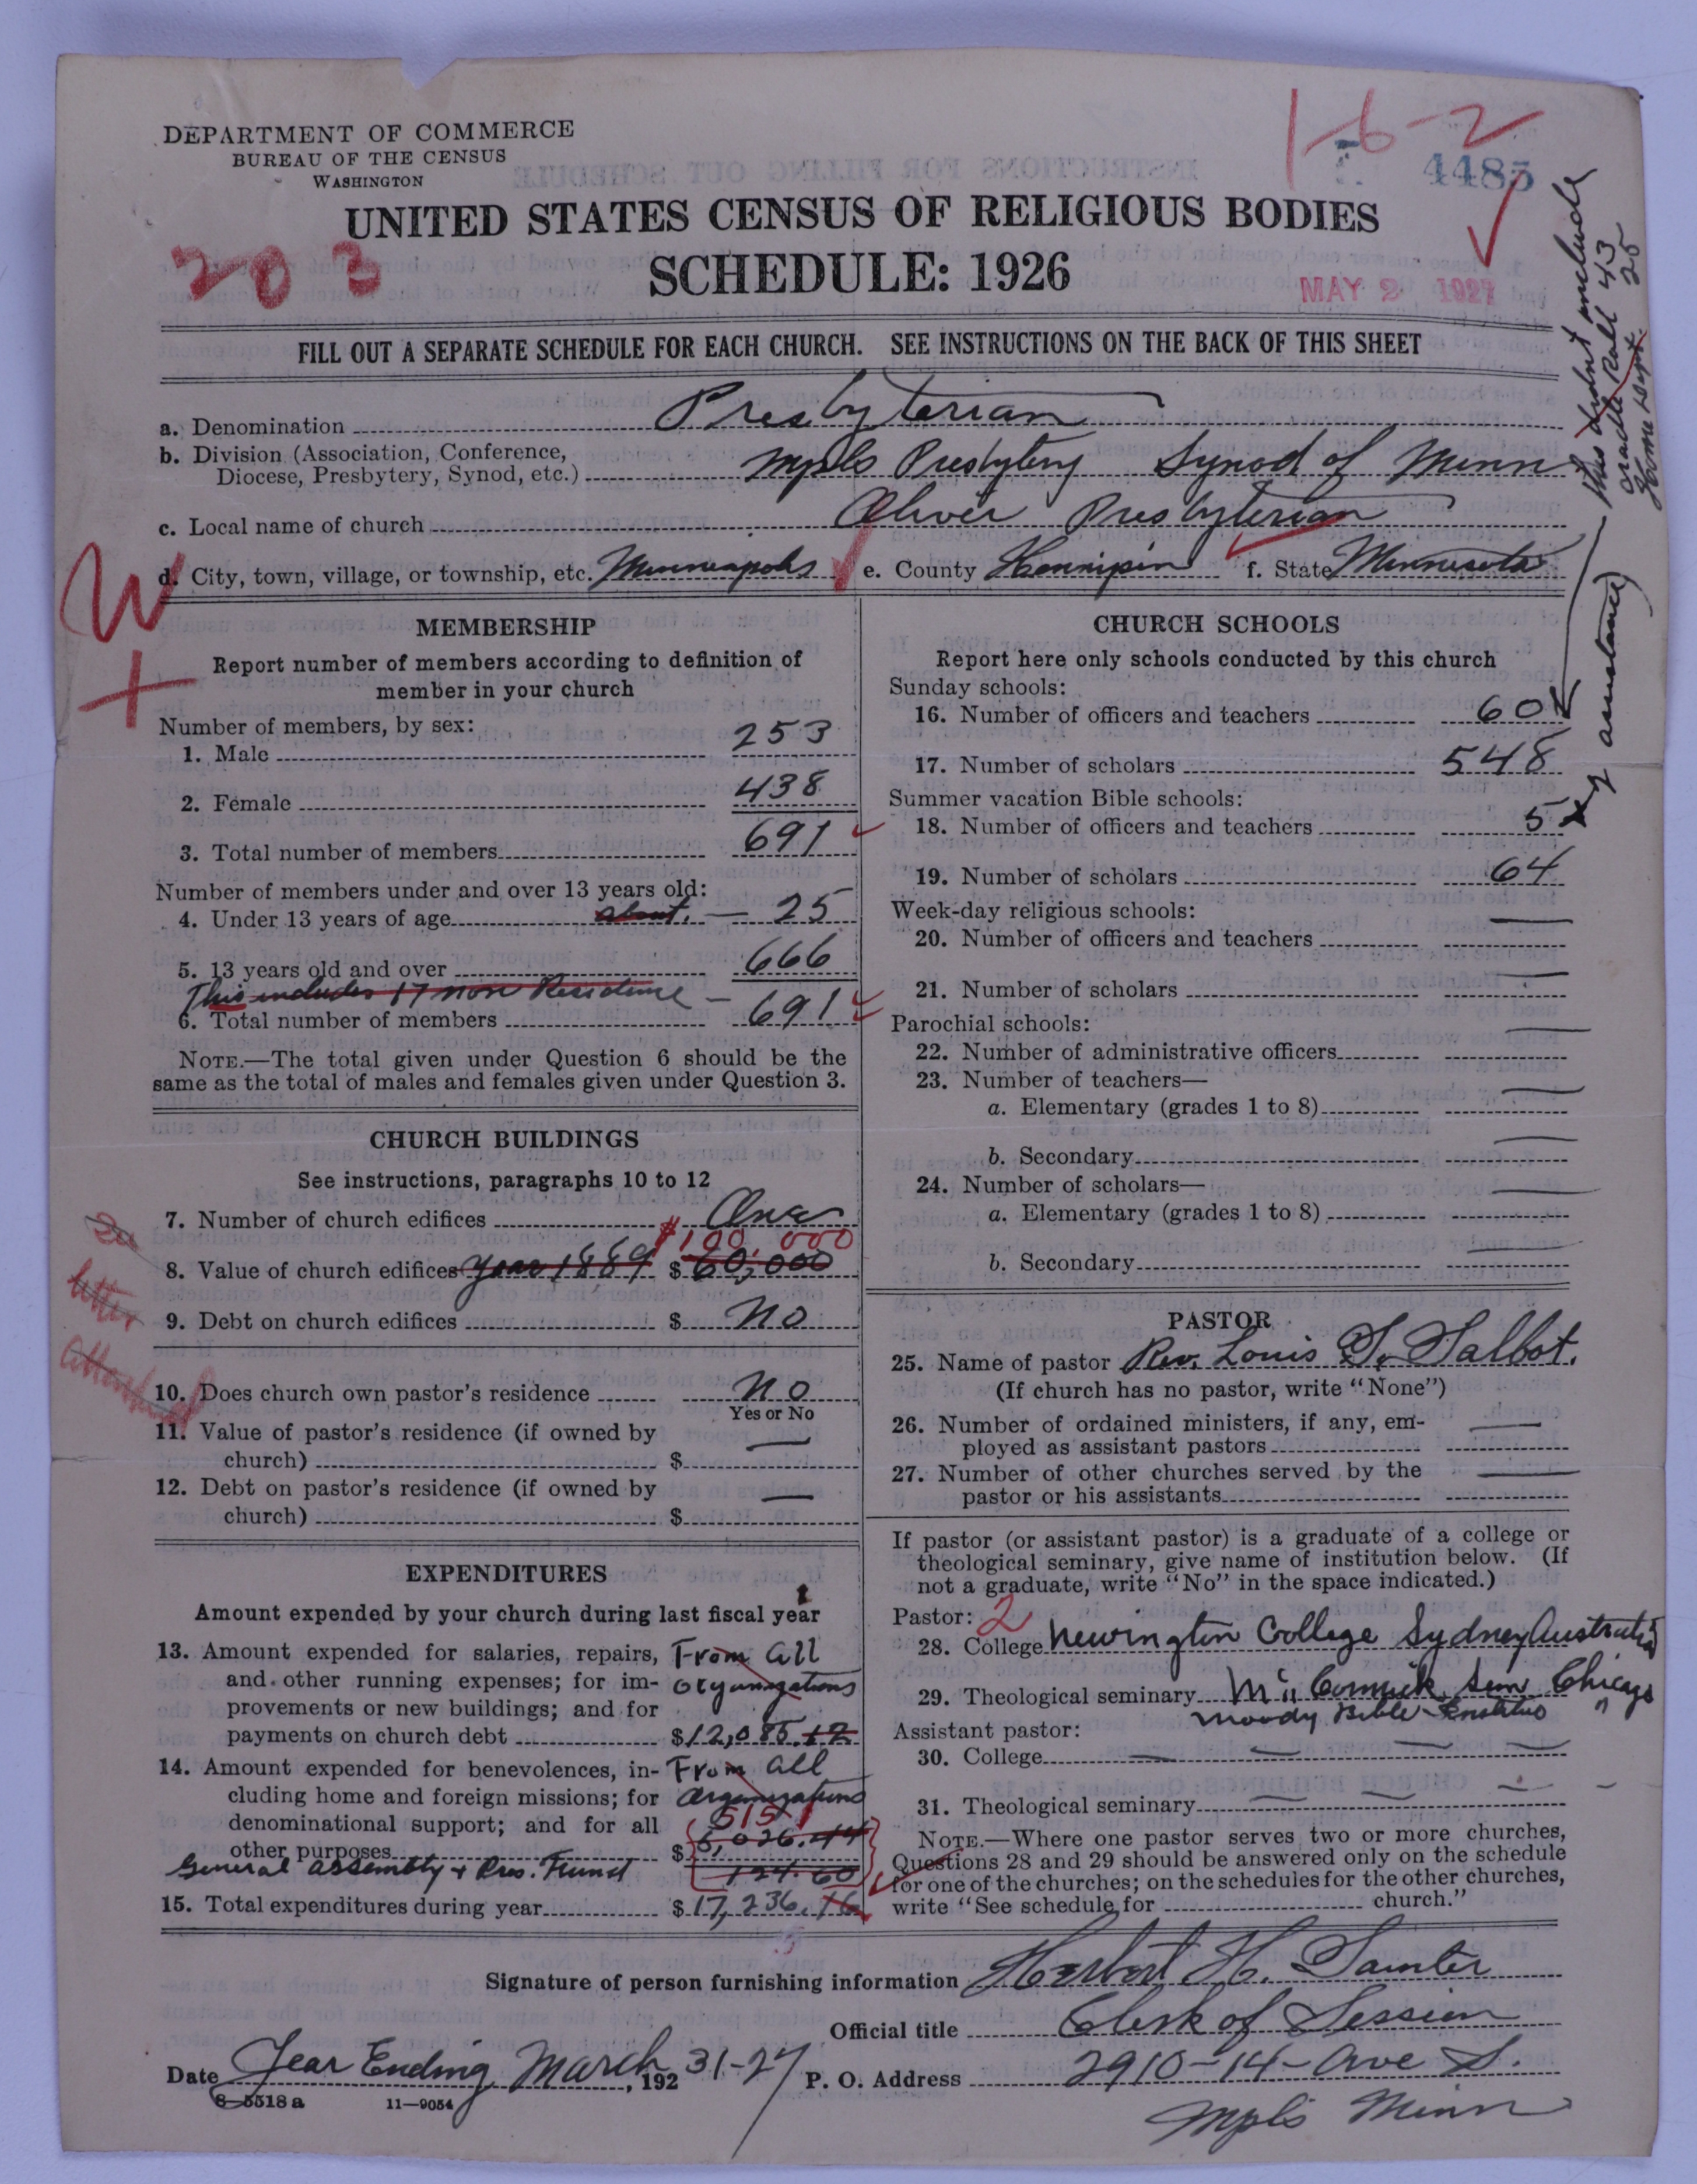 DEPARTMENT OF COMMERCE
BUREAU OF THE CENSUS
WASHINGTON
1-6-2
4485
UNITED STATES CENSUS OF RELIGIOUS BODIES
203
SCHEDULE: 1926
MAY 2 1927
FILL OUT A SEPARATE SCHEDULE FOR EACH CHURCH. SEE INSTRUCTIONS ON THE BACK OF THIS SHEET
a. Denomination Presbyterian
b. Division (Association, Conference,
Diocese, Presbytery, Synod, etc.) Mpls Presbytery Synod of Minn
c. Local name of church Oliver Presbyterian
d. City, town, village, or township, etc. Minneapolis e. County Hennipin f. State Minnesota
This dont include
Cradle Roll 43
Home Dept. 25
W
+
MEMBERSHIP
Report number of members according to definition of
member in your church
Number of members, by sex:
1. Male 253
2. Female 438
3. Total number of members 691
Number of members under and over 13 years old:
4. Under 13 years of age about. — 25
5. 13 years old and over 666
This includes 17 non Residence —
6. Total number of members 691
NOTE.—The total given under Question 6 should be the
same as the total of males and females given under Question 3.
CHURCH BUILDINGS
See instructions, paragraphs 10 to 12
7. Number of church edifices One
$100,000
8. Value of church edifices year 1889 $ 60,000
9. Debt on church edifices $ No
letter
10. Does church own pastor's residence No
Yes or No
11. Value of pastor's residence (if owned by
church) $ —
12. Debt on pastor's residence (if owned by
church) $ —
EXPENDITURES
Amount expended by your church during last fiscal year
13. Amount expended for salaries, repairs, From all
and other running expenses; for im- organizations
provements or new buildings; and for
payments on church debt $12,085.12
14. Amount expended for benevolences, in- From all
cluding home and foreign missions; for organizations
denominational support; and for all 5151
other purposes $ 5,026.44
General Assembly + Pres. Fund 124.60
15. Total expenditures during year $17,236.16
CHURCH SCHOOLS
Report here only schools conducted by this church
Sunday schools:
16. Number of officers and teachers 60
17. Number of scholars 548
Summer vacation Bible schools:
18. Number of officers and teachers 5
19. Number of scholars 64
Week-day religious schools:
20. Number of officers and teachers —
21. Number of scholars —
Parochial schools:
22. Number of administrative officers —
23. Number of teachers—
a. Elementary (grades 1 to 8) —
b. Secondary —
24. Number of scholars—
a. Elementary (grades 1 to 8) —
b. Secondary —
PASTOR
25. Name of pastor Rev. Louis T. Talbot.
(If church has no pastor, write "None")
26. Number of ordained ministers, if any, em-
ployed as assistant pastors —
27. Number of other churches served by the
pastor or his assistants —
If pastor (or assistant pastor) is a graduate of a college or
theological seminary, give name of institution below. (If
not a graduate, write "No" in the space indicated.)
Pastor: 2
28. College Newington College Sydney Australia
29. Theological seminary McCormick Sem Chicago
Moody Bible Institue "
Assistant pastor:
30. College — — — —
31. Theological seminary — —
NOTE.—Where one pastor serves two or more churches,
Questions 28 and 29 should be answered only on the schedule
for one of the churches; on the schedules for the other churches,
write "See schedule for church."
Signature of person furnishing information Herbert H. Samter
Official title Clerk of Session
Date Year Ending March 31-27, 192 P. O. Address 2910-14-Ave S.
Mpls Minn
8-5518a 11—9054